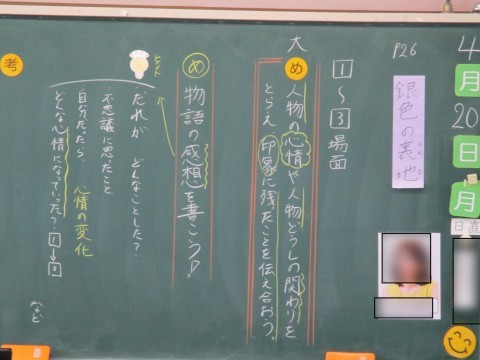 4月20日 月
日直
P26
銀色の裏地
1〜3場面
大
め 人物の心情や人物どうしの関わりを
とらえ、印象に残ったことを伝え合おう。
め 物語の感想を書こう!
ヒント
考
・だれが どんなことした?
・不思議に思たこと
・自分だったら、
心情の変化
・どんな心情になっていった?
など